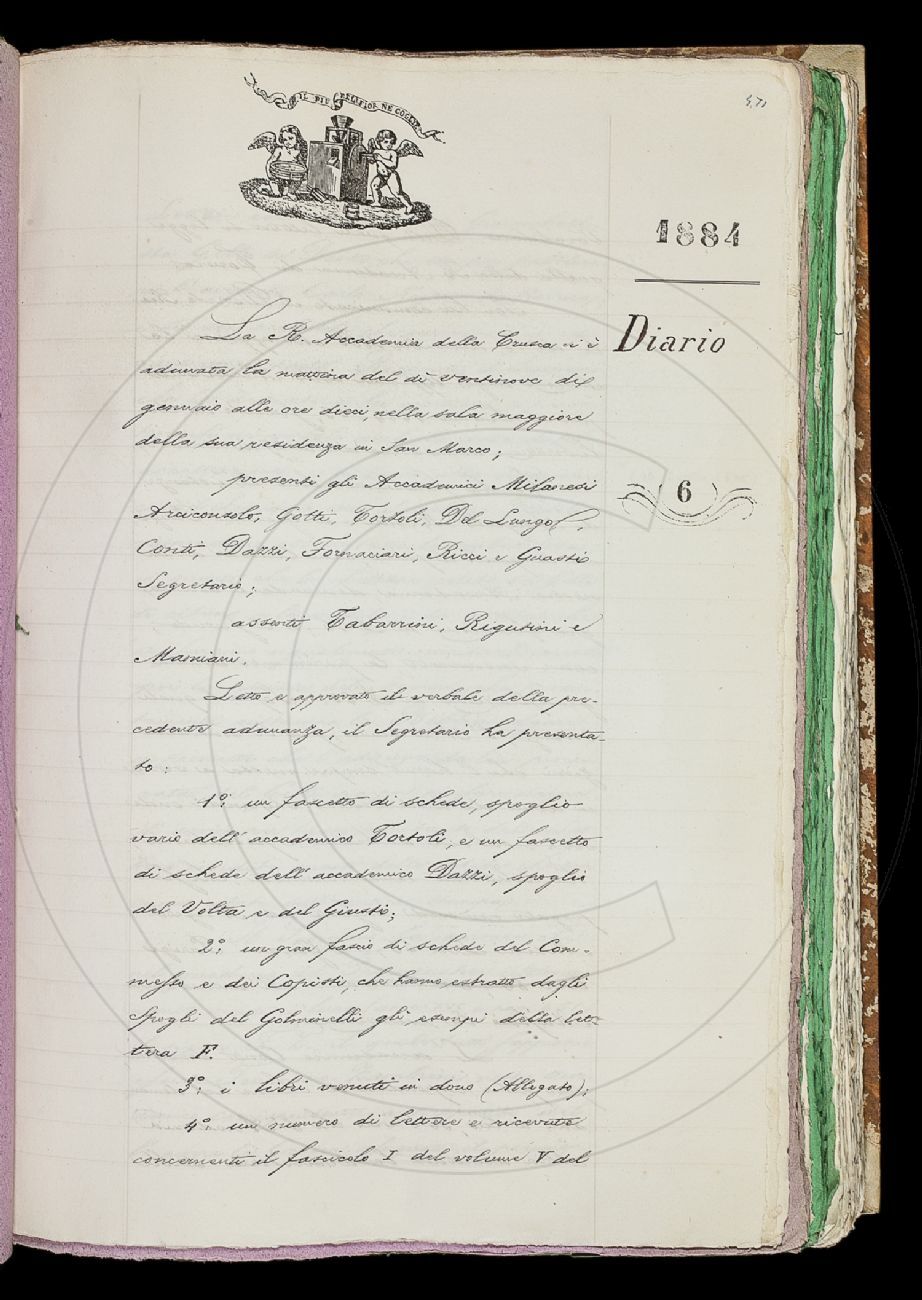 IL PIÙ BEL FIOR NE COGLIE
1884
Diario
6
La R. Accademia della Crusca si è
adunata la mattina del dì ventinove di
gennaio alle ore dieci, nella sala maggiore
della sua residenza in San Marco;
presenti gli Accademici Milanesi
Arciconsolo, Gotti, Tortoli, Del Lungo,
Conti, Dazzi, Fornaciari, Ricci e Guasti
Segretario;
assenti Tabarrini, Rigutini e
Mamiani.
Letto e approvato il verbale della pre-
cedente adunanza, il Segretario ha presenta-
to:
1º: un fascetto di schede, spoglio
vario dell' accademico Tortoli, e un fascetto
di schede dell' accademico Dazzi, spoglio
del Volta e del Giusti;
2º: un gran fascio di schede del Com-
messo e dei Copisti, che hanno estratto dagli
spogli del Golminelli gli esempi della let-
tera F.
3º: i libri venuti in dono (Allegato);
4º: un numero di lettere e ricevute
concernenti il fascicolo I del volume V del